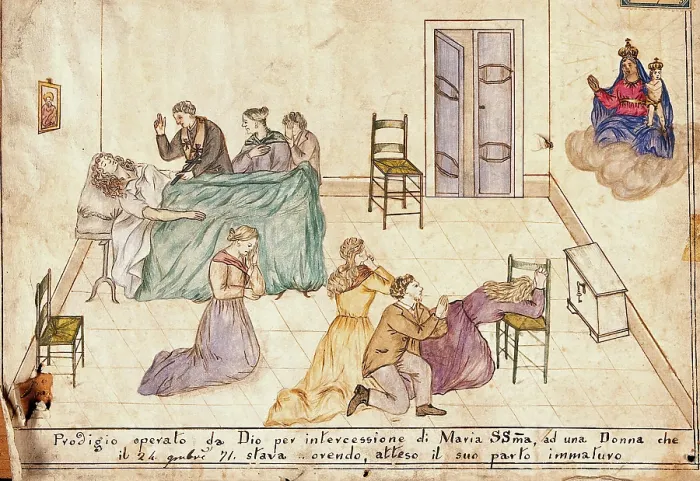 Prodigio operato da Dio per intercessione di Maria SSm̃a, ad una Donna che
il 24 9mbrè 71. stava ..orendo, atteso il suo parto immaturo